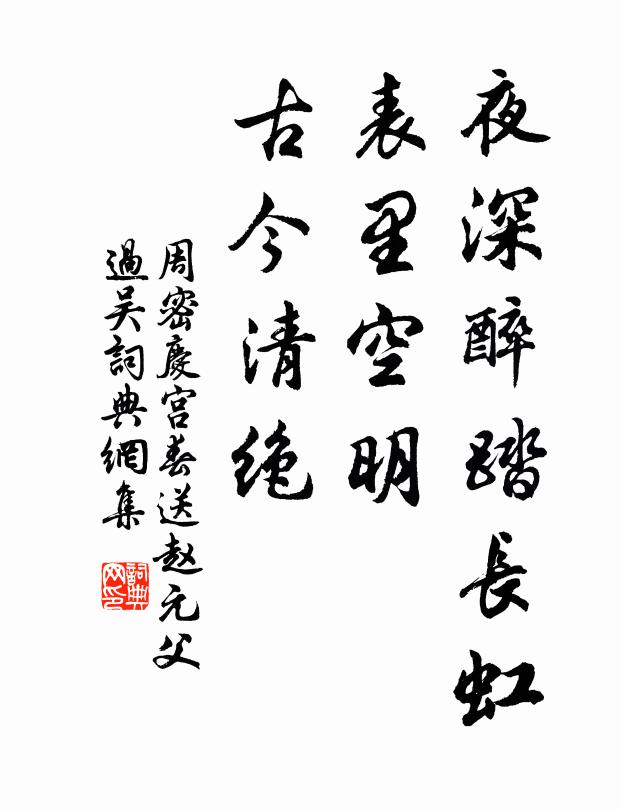 夜深醉踏長虹
表里空明
古今清絶
周密慶宫春送赵元父
過吴詞典網集
詞典网印